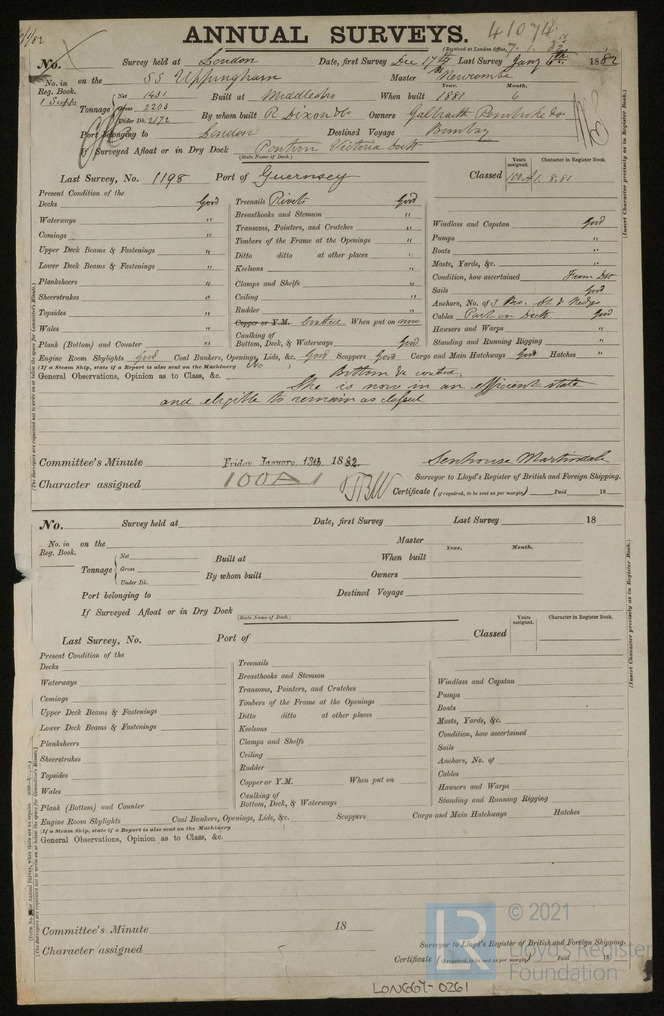 ANNUAL SURVEYS.
41074
(Received at London Office, 7. 1. 82
No. Survey held at London Date, first Survey Dec 17th Last Survey Jany 6th 1882
No. in Reg. Book. on the SS Uppingham Master Newcombe
1 Supp
Tonnage Net 1431 Gross 2203 Under Dk. 2172 Built at Middlesbro When built Year. 1881 Month. 6
By whom built R Dixon & Co Owners Galbraith Pembroke & Co
Port belonging to London Destined Voyage Bombay
If Surveyed Afloat or in Dry Dock Pontoon Victoria Dock
(State Name of Dock.)
Last Survey, No. 1198 Port of Guernsey Classed Years assigned. Character in Register Book. 100A1. 8.81
(Insert Character precisely as in Register Book.)
Present Condition of the
Decks Good
Waterways "
Comings "
Upper Deck Beams & Fastenings "
Lower Deck Beams & Fastenings "
Planksheers "
Sheerstrakes "
Topsides "
Wales "
Plank (Bottom) and Counter "
Treenails Rivets Good
Breasthooks and Stemson "
Transoms, Pointers, and Crutches "
Timbers of the Frame at the Openings "
Ditto ditto at other places "
Keelsons "
Clamps and Shelfs "
Ceiling "
Rudder "
Copper or Y.M. Coated When put on now
Caulking of Bottom, Deck, & Waterways Good
Windlass and Capstan Good
Pumps "
Boats "
Masts, Yards, &c. "
Condition, how ascertained From Dk
Sails Good
Anchors, No. of 3 Bro. St & Kedge
Cables Part on Deck Good
Hawsers and Warps "
Standing and Running Rigging "
Engine Room Skylights good Coal Bunkers, Openings, Lids, &c. Good Scuppers Good Cargo and Main Hatchways Good Hatches "
(If a Steam Ship, state if a Report is also sent on the Machinery No
General Observations, Opinion as to Class, &c. Bottom &c coated,
She is now in an efficient state
and eligible to remain as classed
Committee's Minute Friday January 13th 1882. Senhouse Martindale
Surveyor to Lloyd's Register of British and Foreign Shipping.
Character assigned 100A1
Certificate (if required, to be sent as per margin) Paid 18
No. Survey held at Date, first Survey Last Survey 18
No. in Reg. Book. on the Master
Tonnage Net Gross Under Dk. Built at When built Year. Month.
By whom built Owners
Port belonging to Destined Voyage
If Surveyed Afloat or in Dry Dock
(State Name of Dock.)
Last Survey, No. Port of Classed Years assigned. Character in Register Book.
(Insert Character precisely as in Register Book.)
Present Condition of the
Decks
Waterways
Comings
Upper Deck Beams & Fastenings
Lower Deck Beams & Fastenings
Planksheers
Sheerstrakes
Topsides
Wales
Plank (Bottom) and Counter
Treenails
Breasthooks and Stemson
Transoms, Pointers, and Crutches
Timbers of the Frame at the Openings
Ditto ditto at other places
Keelsons
Clamps and Shelfs
Ceiling
Rudder
Copper or Y.M. When put on
Caulking of Bottom, Deck, & Waterways
Windlass and Capstan
Pumps
Boats
Masts, Yards, &c.
Condition, how ascertained
Sails
Anchors, No. of
Cables
Hawsers and Warps
Standing and Running Rigging
Engine Room Skylights Coal Bunkers, Openings, Lids, &c. Scuppers Cargo and Main Hatchways Hatches
(If a Steam Ship, state if a Report is also sent on the Machinery
General Observations, Opinion as to Class, &c.
Committee's Minute 18
Surveyor to Lloyd's Register of British and Foreign Shipping.
Character assigned
Certificate (if required, to be sent as per margin) Paid 18
LR © 2021
Lloyd's Register
Foundation
LON667-0261